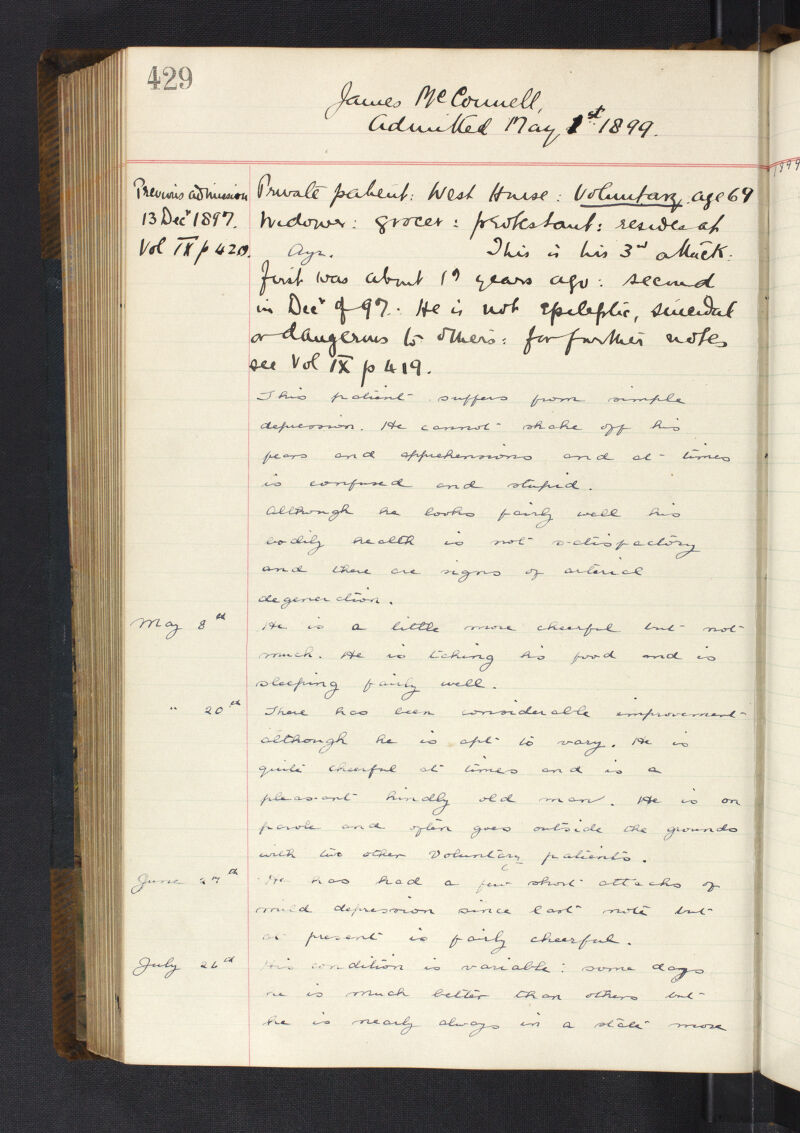 429
James McConnell,
Admitted May 1st 1899.
1899
Previous admission
13 Decr 1897.
Vol IX p 420.
Private patient: West House: Voluntary. age 69
Widower: grocer: protestant: resides at
Ayr. This is his 3rd attack:
first was about 19 years ago: second
in Decr of 97. He is not epileptic, suicidal
or dangerous to others: for further notes
see Vol IX p 419.
This patient suffers from simple
depression. He cannot shake off his
fears and apprehensions and at times
is confused and stupid.
Although he looks fairly well his
bodily health is not satisfactory
and there are signs of arterial
degeneration.
May 8th
He is a little more cheerful but not
much. He is taking his food and is
sleeping fairly well.
" 20th
There has been considerable improvement
although he is apt to vary. He is
quite cheerful at times and is a
pleasant kindly old man. He is on
parole and often goes outside the grounds
with two other Voluntary patients.
June 27th
He has had a few short attacks of
mild depression since last note but
at present is fairly cheerful.
July 26th
His condition is variable: some days
he is much better than others but
he is nearly always in a state more